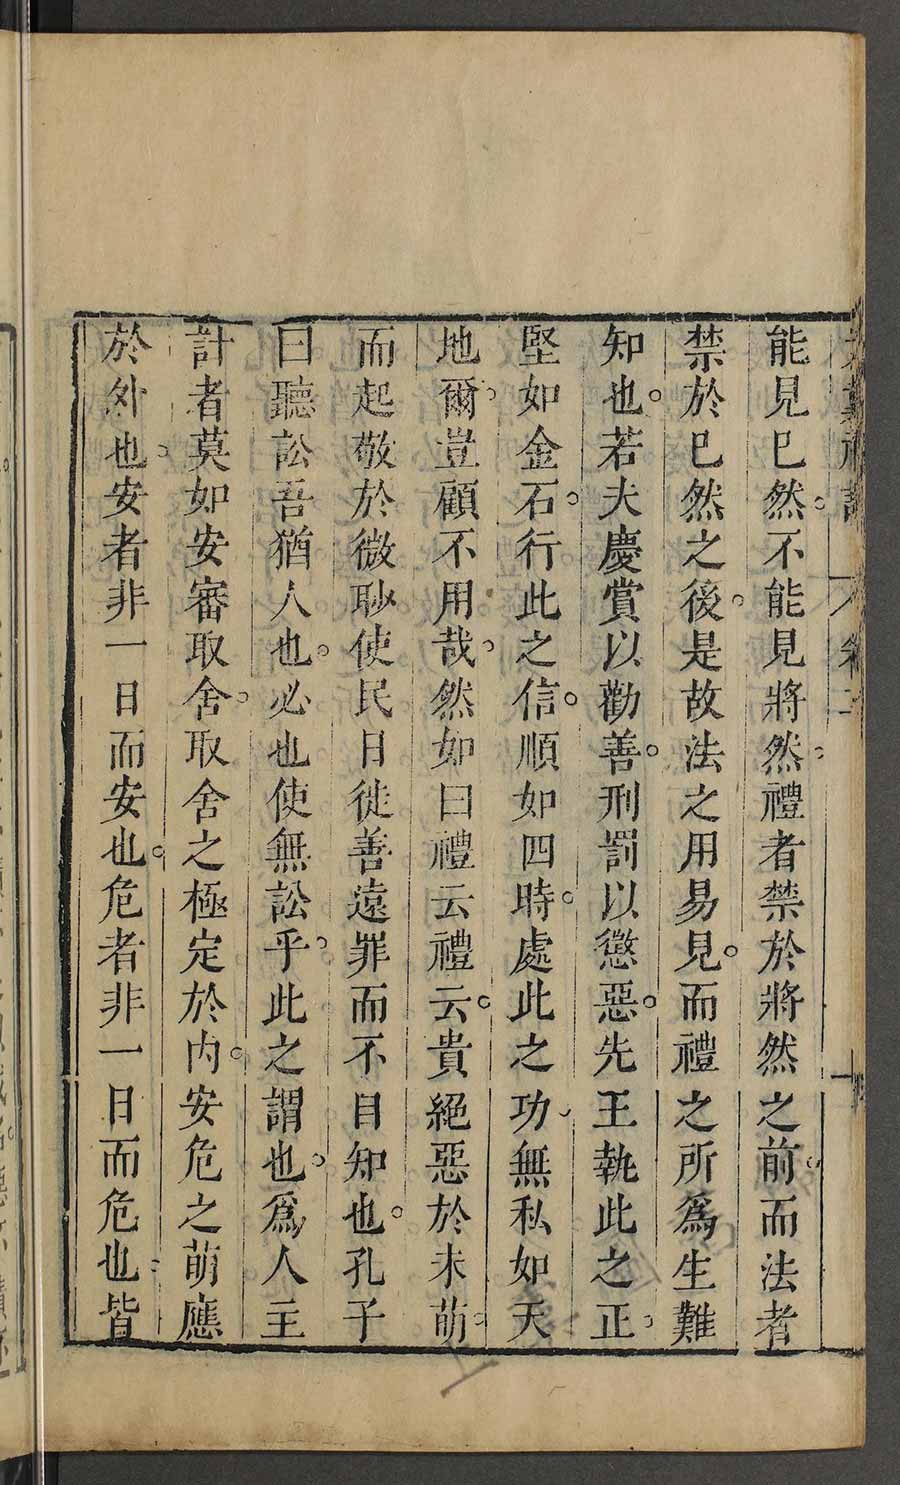 大戴禮記 卷二 十
能見已然。不能見將然。禮者禁於將然之前。而法者
禁於已然之後。是故法之用易見。而禮之所爲生難
知也。若夫慶賞以勸善。刑罰以懲惡。先王執此之正。
堅如金石。行此之信。順如四時。處此之功。無私如天
地爾。豈顧不用哉。然如曰禮云禮云。貴絕惡於未萌。
而起敬於微眇。使民日徙善遠罪而不自知也。孔子
曰聽訟吾猶人也。必也使無訟乎。此之謂也。爲人主
計者莫如安審取舍。取舍之極定於內。安危之萌應
於外也。安者非一日而安也。危者非一日而危也。皆